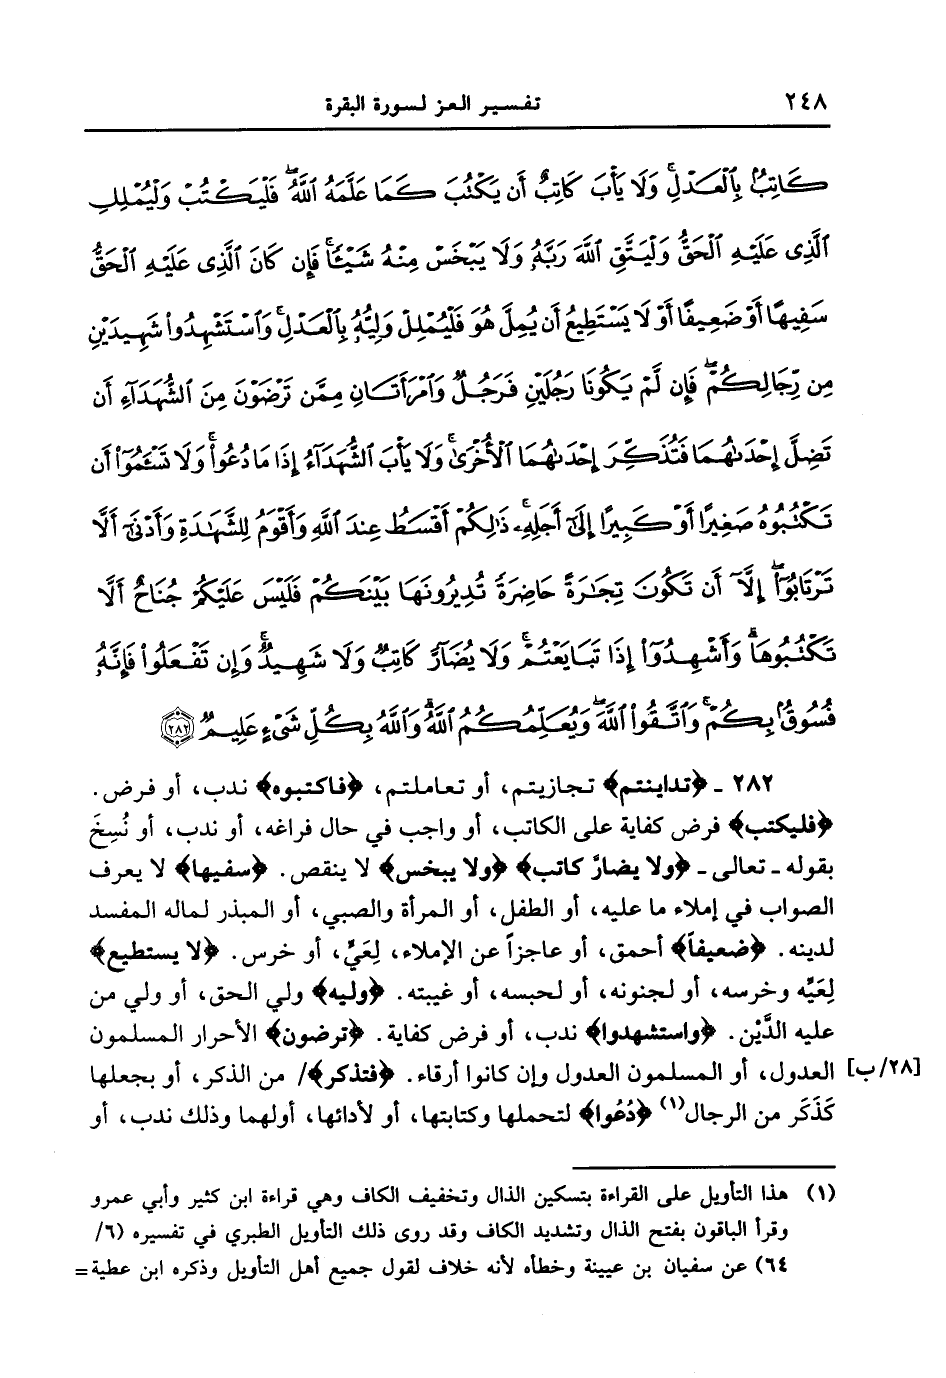 ٢٤٨
تفسير العز لسورة البقرة
كَاتِبٌۢ بِٱلْعَدْلِۚ وَلَا يَأْبَ كَاتِبٌ أَن يَكْتُبَ كَمَا عَلَّمَهُ ٱللَّهُۚ فَلْيَكْتُبْ وَلْيُمْلِلِ
ٱلَّذِى عَلَيْهِ ٱلْحَقُّ وَلْيَتَّقِ ٱللَّهَ رَبَّهُۥ وَلَا يَبْخَسْ مِنْهُ شَيْـًٔاۚ فَإِن كَانَ ٱلَّذِى عَلَيْهِ ٱلْحَقُّ
سَفِيهًا أَوْ ضَعِيفًا أَوْ لَا يَسْتَطِيعُ أَن يُمِلَّ هُوَ فَلْيُمْلِلْ وَلِيُّهُۥ بِٱلْعَدْلِۚ وَٱسْتَشْهِدُوا۟ شَهِيدَيْنِ
مِن رِّجَالِكُمْۖ فَإِن لَّمْ يَكُونَا رَجُلَيْنِ فَرَجُلٌ وَٱمْرَأَتَانِ مِمَّن تَرْضَوْنَ مِنَ ٱلشُّهَدَآءِ أَن
تَضِلَّ إِحْدَىٰهُمَا فَتُذَكِّرَ إِحْدَىٰهُمَا ٱلْأُخْرَىٰۚ وَلَا يَأْبَ ٱلشُّهَدَآءُ إِذَا مَا دُعُوا۟ۚ وَلَا تَسْـَٔمُوٓا۟ أَن
تَكْتُبُوهُ صَغِيرًا أَوْ كَبِيرًا إِلَىٰٓ أَجَلِهِۦۚ ذَٰلِكُمْ أَقْسَطُ عِندَ ٱللَّهِ وَأَقْوَمُ لِلشَّهَٰدَةِ وَأَدْنَىٰٓ أَلَّا
تَرْتَابُوٓا۟ۖ إِلَّآ أَن تَكُونَ تِجَٰرَةً حَاضِرَةً تُدِيرُونَهَا بَيْنَكُمْ فَلَيْسَ عَلَيْكُمْ جُنَاحٌ أَلَّا
تَكْتُبُوهَاۗ وَأَشْهِدُوٓا۟ إِذَا تَبَايَعْتُمْۚ وَلَا يُضَآرَّ كَاتِبٌ وَلَا شَهِيدٌۚ وَإِن تَفْعَلُوا۟ فَإِنَّهُۥ
فُسُوقٌۢ بِكُمْۗ وَٱتَّقُوا۟ ٱللَّهَۖ وَيُعَلِّمُكُمُ ٱللَّهُۗ وَٱللَّهُ بِكُلِّ شَىْءٍ عَلِيمٌ ﴿٢٨٢﴾
٢٨٢ ـ ﴿تداينتم﴾ تجازيتم، أو تعاملتم، ﴿فاكتبوه﴾ ندب، أو فرض.
﴿فليكتب﴾ فرض كفاية على الكاتب، أو واجب في حال فراغه، أو ندب، أو نُسِخَ
بقوله ـ تعالى ـ ﴿ولا يضارَّ كاتب﴾ ﴿ولا يبخس﴾ لا ينقص. ﴿سفيها﴾ لا يعرف
الصواب في إملاء ما عليه، أو الطفل، أو المرأة والصبي، أو المبذر لماله المفسد
لدينه. ﴿ضعيفاً﴾ أحمق، أو عاجزاً عن الإملاء، لِعَيٍّ، أو خرس. ﴿لا يستطيع﴾
لِعَيِّه وخرسه، أو لجنونه، أو لحبسه، أو غيبته. ﴿وليه﴾ ولي الحق، أو ولي من
عليه الدَّيْن. ﴿واستشهدوا﴾ ندب، أو فرض كفاية. ﴿ترضون﴾ الأحرار المسلمون
العدول، أو المسلمون العدول وإن كانوا أرقاء. ﴿فتذكر﴾/ من الذكر، أو بجعلها [٢٨/ب]
كَذَكَر من الرجال(١) ﴿دُعُوا﴾ لتحملها وكتابتها، أو لأدائها، أولهما وذلك ندب، أو
(١) هذا التأويل على القراءة بتسكين الذال وتخفيف الكاف وهي قراءة ابن كثير وأبي عمرو
وقرأ الباقون بفتح الذال وتشديد الكاف وقد روى ذلك التأويل الطبري في تفسيره (٦/
٦٤) عن سفيان بن عيينة وخطأه لأنه خلاف لقول جميع أهل التأويل وذكره ابن عطية =